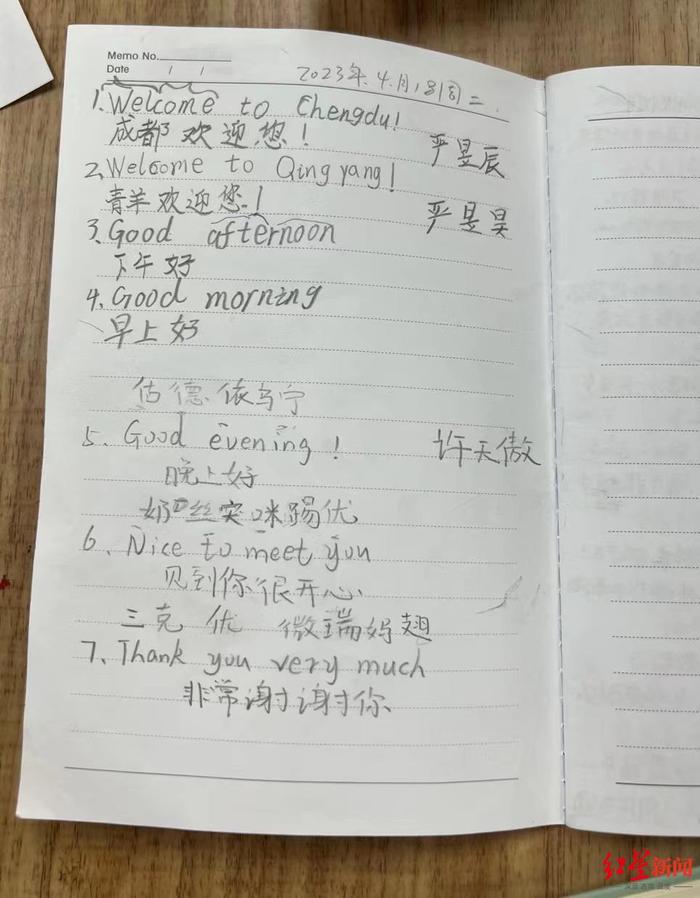 Memo No.
Date / / 2023年.4.月18(周)二.
1. Welcome to Chengdu!
成都欢迎您!
严昱辰
2. Welcome to Qingyang!
青羊欢迎您!
严昱昊
3. Good afternoon
下午好
4. Good morning
早上好
估德 依乌宁
5. Good evening!
许天傲
晚上好
奶丝突咪踢优
6. Nice to meet you
见到你很开心
三克 优 微瑞妈翅
7. Thank you very much
非常谢谢你
红星新闻